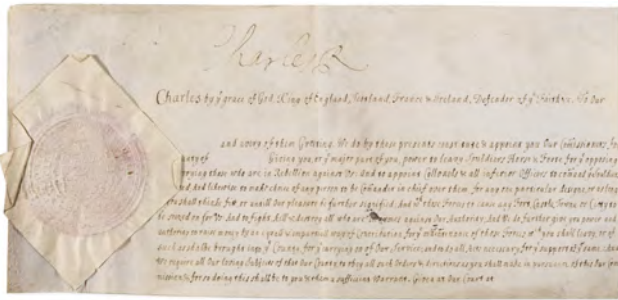 Charles R
Charles by yͤ grace of God, King of England, Scotland, France & Ireland, Defender of yͤ Faith &c. To Our
and every of them Greeting. We do by these presents constitute & appoint you Our Comissioners for
County of Giving you, or yͤ major part of you, power to leavy Souldiers Horse & Foote, for yͤ opposing
those who are in Rebellion against Us. And to appoint Collonels & all inferior Officers to comand
And libertie to make choice of any person to be Comander in chief over them for any one particular designe, or so long
shall thinke fit, or untill Our pleasure be further signified. And wᵗʰ those Forces to take any Fort, Castle, Towne, or Cittys
be seised on for Us. And to fight, kill & destroy all who are in Armes against Our Authority, And We do further give you power and
authority to raise mony by an equal & impartial way of Contribution for yͤ maintenance of those Forces wᶜʰ you shall leavy, or of
such as shalbe brought into yͤ County, for yͤ carrying on of Our Service, and to do all Acts necessary for yͤ support of yͤ same.
We require all Our loving Subjects of that Our County to obey all such Orders & directions as you shall make in pursuance of this Our Com
mission & for so doing this shall be to you & them a sufficient Warrant. Given at Our Court at